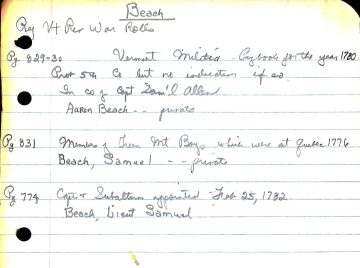 Beach
Reg Vt Rev War Rolls
Pg 829-30 Vermont Militia - Pay book for the year 1780
Prob 5th Co but no indication if so
In co of Capt Sam'l Allen
Aaron Beach -- private
Pg 831 Members of Green Mt Boys which were at Quebec 1776
Beach, Samuel -- private
Pg 774 Capt & Subalterns appointed Feb 25, 1782
Beach, Lieut Samuel